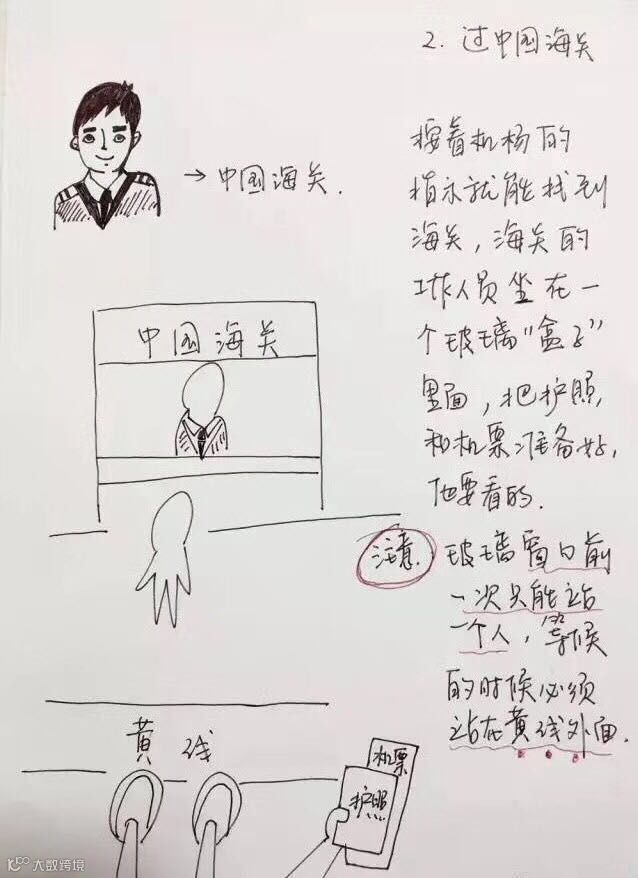 2. 过中国海关
→中国海关.
按着机杨的
指示就能找到
海关,海关的
工作人员坐在一
个玻璃“盒子”
里面,把护照
和机票准备好,
他要看的.
中国海关
注意.
玻璃窗口前
一次只能站
一个人,等候
的时候必须
站在黄线外面.
黄线
机票
护照
大数跨境